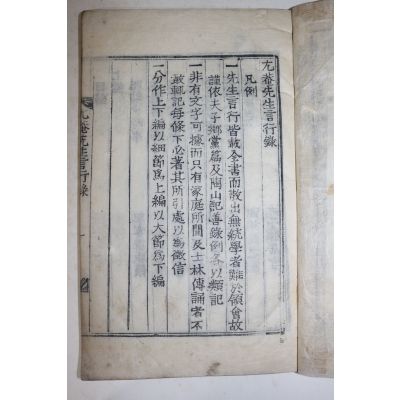 九菴先生言行錄
凡例
一先生言行皆散全書而散出無統學者難於領會故
謹依夫子鄕黨篇及陶山記善錄例各以類記
一非有文字可據而只有家庭所聞及士林傳誦者不
敢輒記每條下必著其所引處以爲徵信
一分作上下編以細節爲上編以大節爲下編
九菴先生言行錄
一